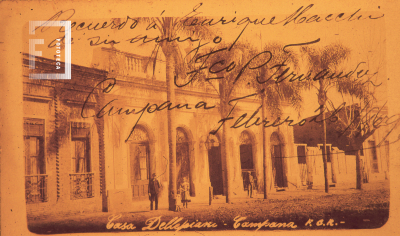 Recuerdo á Enrique Macchi
de su amigo
Fco B. Fernandez
Campana
Febrero
FOTOTECA
Casa Dellepiani - Campana F.C.R.-